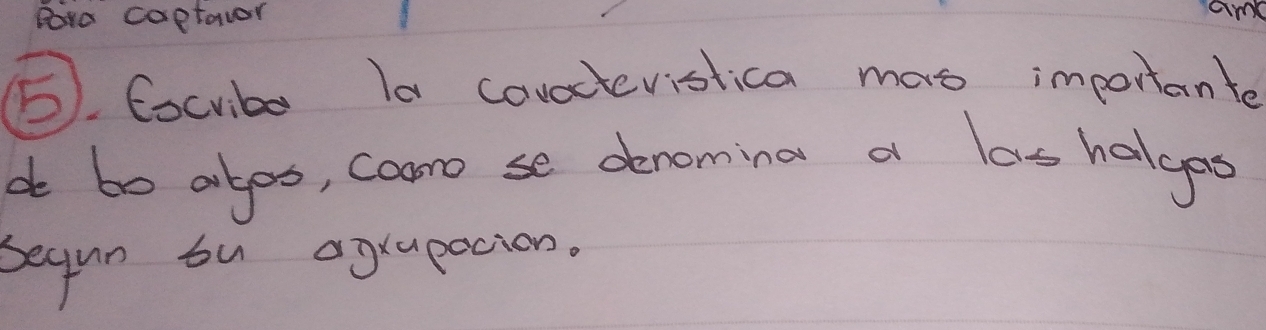 Para captavor
am
5). Escriba la cavacteristica mas importante
de los algas, como se denomina a las halgas
segun su agrupacion.